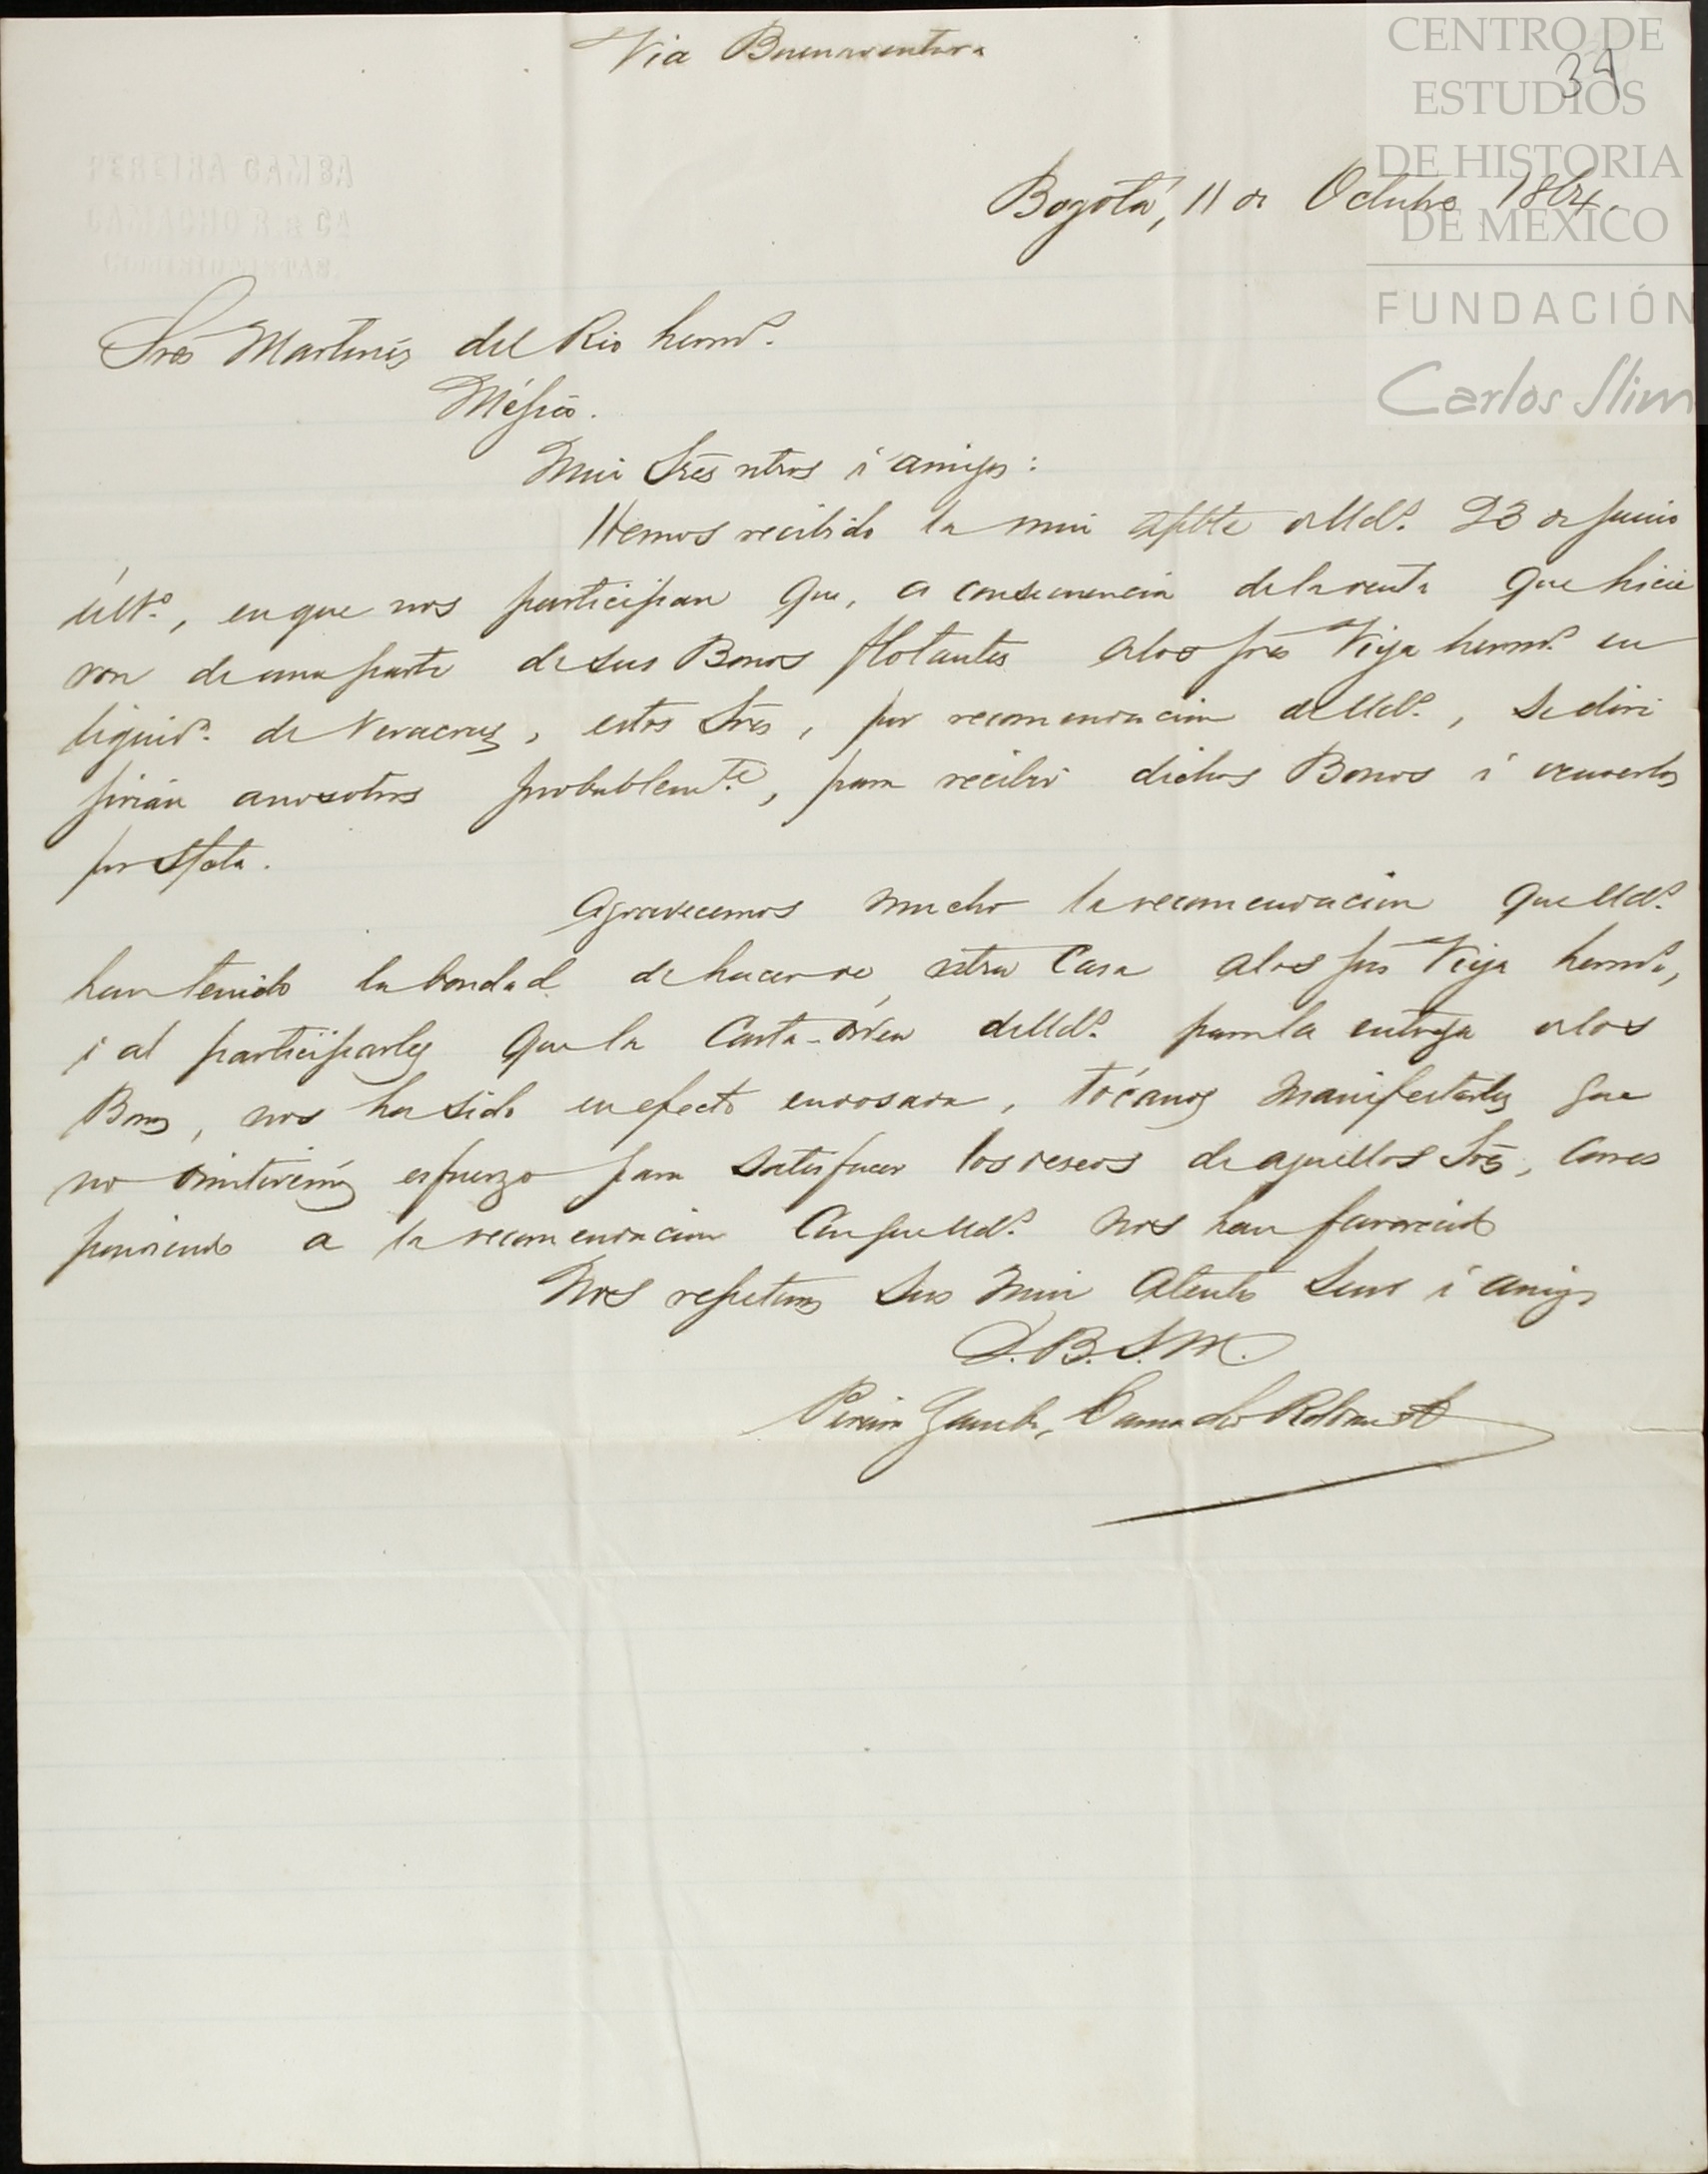 Via Buenaventura
CENTRO DE
ESTUDIOS
DE HISTORIA
DE MÉXICO
FUNDACIÓN
Carlos Slim
39
PEREIRA GAMBA
CAMACHO R. & Ca
COMISIONISTAS.
Bogotá, 11 de Octubre 1864.
Sres Martines del Rio hermos.
Méjico.
Mui Sres ntros i amigos:
Hemos recibido la mui apble de Uds. 23 de Junio
últo., en que nos participan que, a consecuencia de la venta que hicie
ron de una parte de sus Bonos flotantes a los Sres Viya hermos. en
liquidn. de Veracruz, estos Sres, por recomendacion de Uds., se diri
jirían a nosotros probablemte., para recibir dichos Bonos i venderlos
por
Agradecemos mucho la recomendacion que Uds.
han tenido la bondad de hacer de ntra Casa a los Sres Viya hermos,
i al participarles que la Carta-órden de Uds. para la entrega de los
Bonos, nos ha sido en efecto endosada, tócanos manifestarles que
no omitiremos esfuerzo para satisfacer los deseos de aquellos Sres, corres
pondiendo a la recomendacion con que Uds. nos han favorecido
Nos repetimos sus mui atentos i amigos
Q.B.S.M.
Pereira Gamba, Camacho Roldan &